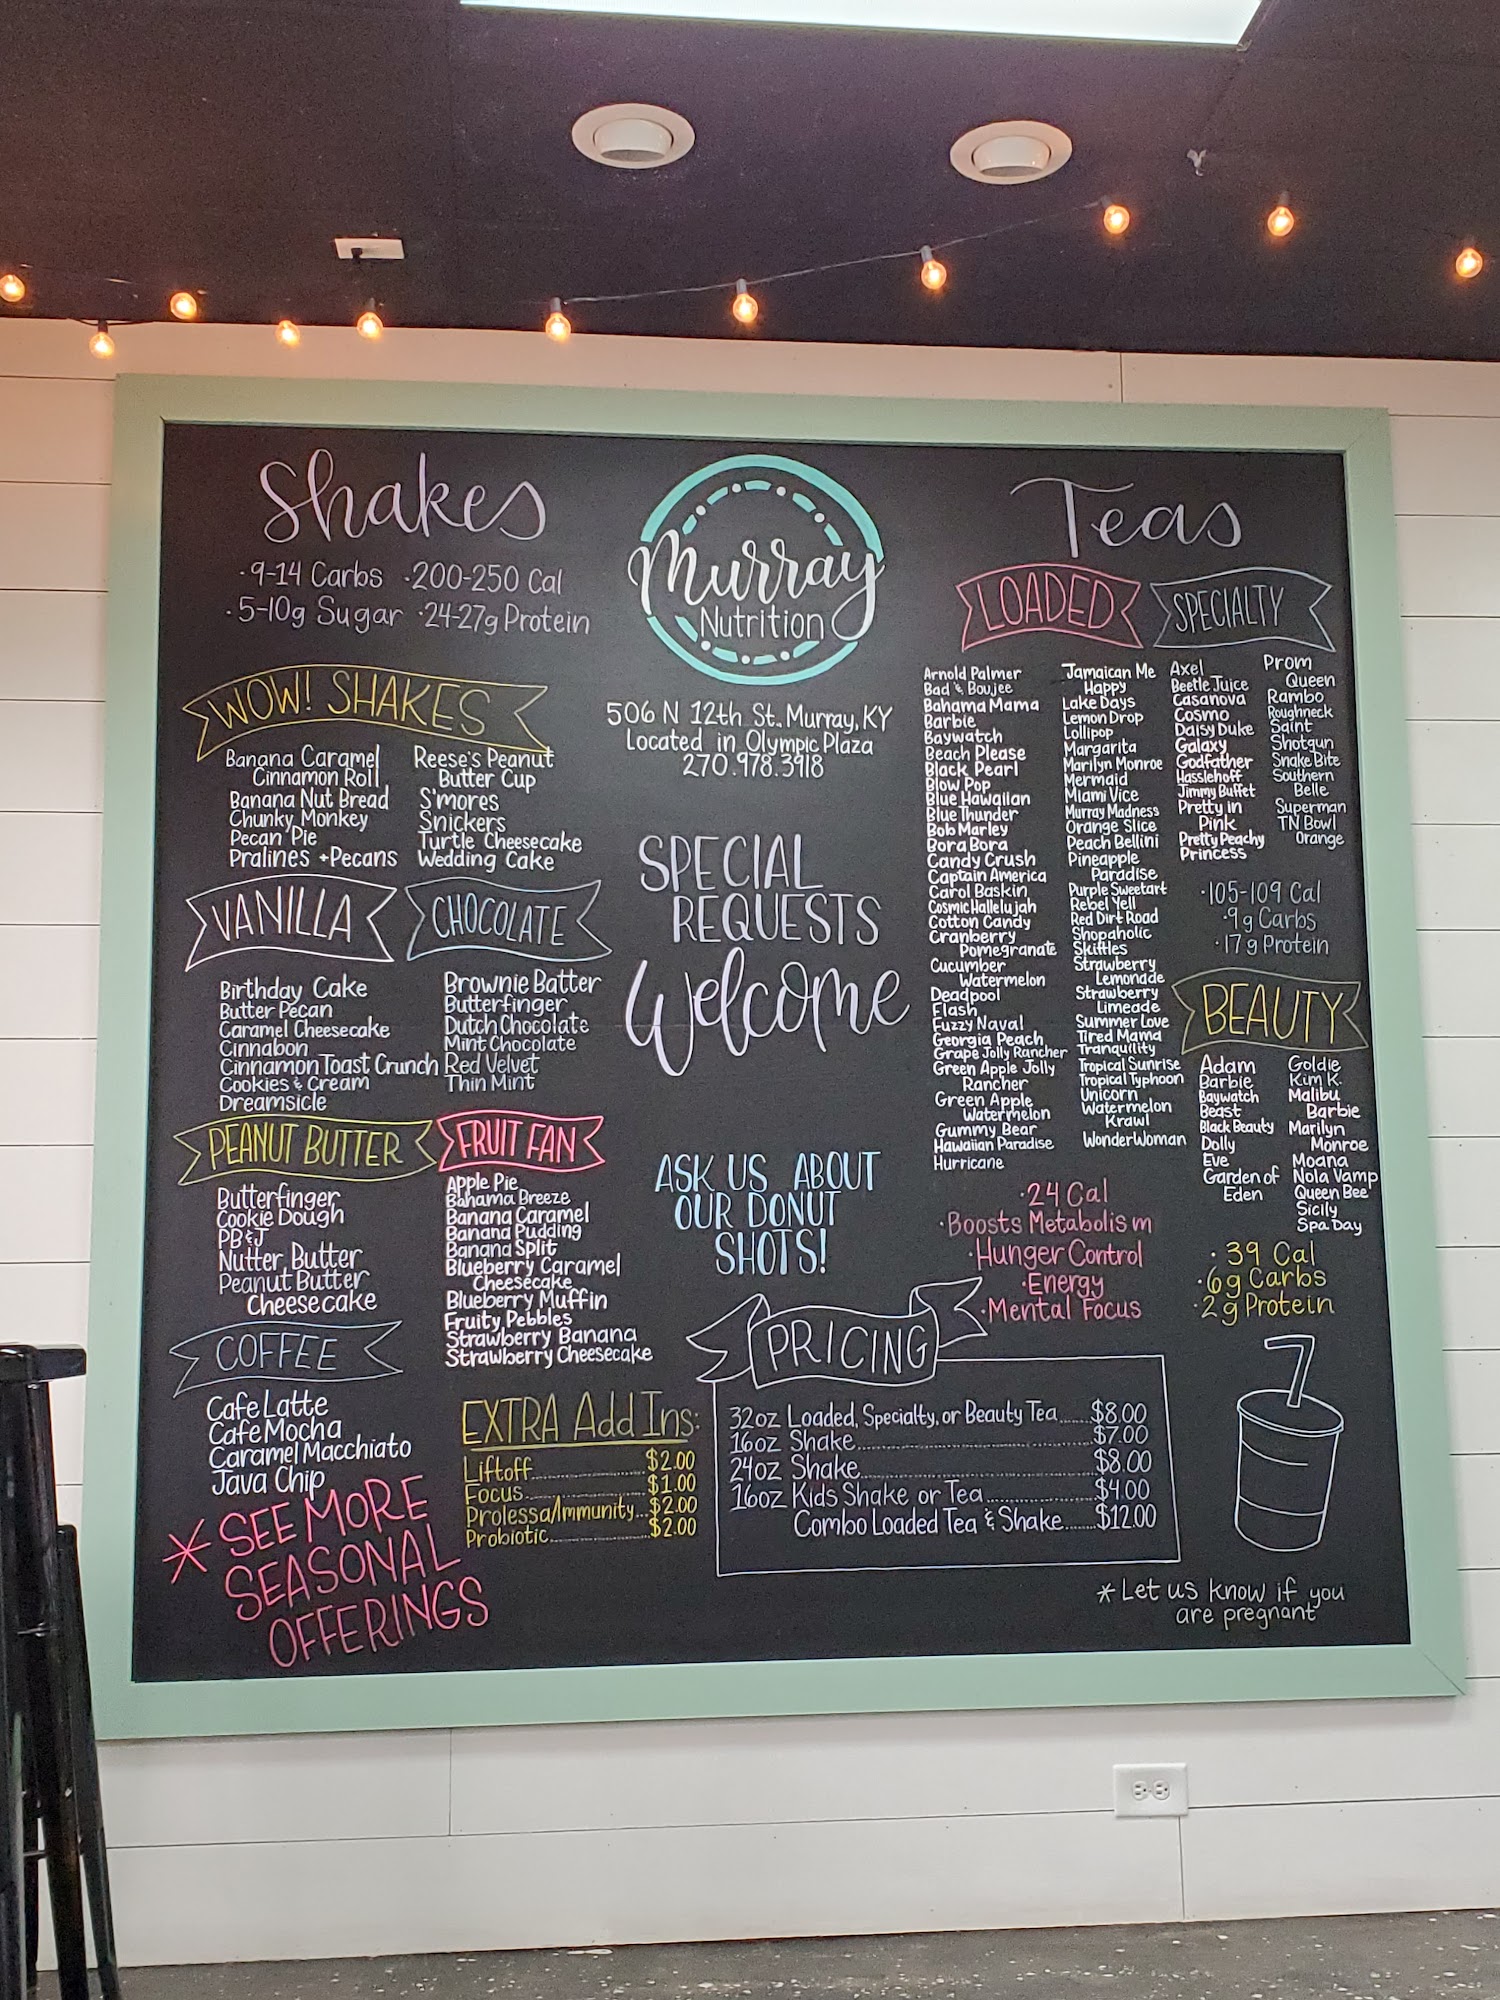 Shakes
·9-14 Carbs ·200-250 Cal
·5-10g Sugar ·24-27g Protein
WOW! SHAKES
Banana Caramel
Cinnamon Roll
Banana Nut Bread
Chunky Monkey
Pecan Pie
Pralines + Pecans
Reese's Peanut
Butter Cup
S'mores
Snickers
Turtle Cheesecake
Wedding Cake
VANILLA
Birthday Cake
Butter Pecan
Caramel Cheesecake
Cinnabon
Cinnamon Toast Crunch
Cookies & Cream
Dreamsicle
CHOCOLATE
Brownie Batter
Butterfinger
Dutch Chocolate
Mint Chocolate
Red Velvet
Thin Mint
PEANUT BUTTER
Butterfinger
Cookie Dough
PB&J
Nutter Butter
Peanut Butter
Cheesecake
FRUIT FAN
Apple Pie
Bahama Breeze
Banana Caramel
Banana Pudding
Banana Split
Blueberry Caramel
Cheesecake
Blueberry Muffin
Fruity Pebbles
Strawberry Banana
Strawberry Cheesecake
COFFEE
Cafe Latte
Cafe Mocha
Caramel Macchiato
Java Chip
* SEE MORE
SEASONAL
OFFERINGS
EXTRA Add Ins:
Liftoff..........$2.00
Focus..........$1.00
Prolessa/Immunity...$2.00
Probiotic..........$2.00
Murray
Nutrition
506 N 12th St. Murray, KY
Located in Olympic Plaza
270.978.3918
SPECIAL
REQUESTS
Welcome
ASK US ABOUT
OUR DONUT
SHOTS!
PRICING
32oz Loaded, Specialty, or Beauty Tea......$8.00
16oz Shake..........$7.00
24oz Shake..........$8.00
16oz Kids Shake or Tea..........$4.00
Combo Loaded Tea & Shake......$12.00
Teas
LOADED
Arnold Palmer
Bad & Boujee
Bahama Mama
Barbie
Baywatch
Beach Please
Black Pearl
Blow Pop
Blue Hawaiian
Blue Thunder
Bob Marley
Bora Bora
Candy Crush
Captain America
Carol Baskin
Cosmic Hallelujah
Cotton Candy
Cranberry
Pomegranate
Cucumber
Watermelon
Deadpool
Flash
Fuzzy Naval
Georgia Peach
Grape Jolly Rancher
Green Apple Jolly
Rancher
Green Apple
Watermelon
Gummy Bear
Hawaiian Paradise
Hurricane
Jamaican Me
Happy
Lake Days
Lemon Drop
Lollipop
Margarita
Marilyn Monroe
Mermaid
Miami Vice
Murray Madness
Orange Slice
Peach Bellini
Pineapple
Paradise
Purple Sweetart
Rebel Yell
Red Dirt Road
Shopaholic
Skittles
Strawberry
Lemonade
Strawberry
Limeade
Summer Love
Tired Mama
Tranquility
Tropical Sunrise
Tropical Typhoon
Unicorn
Watermelon
Krawl
Wonder Woman
·24 Cal
·Boosts Metabolism
·Hunger Control
·Energy
·Mental Focus
SPECIALTY
Axel
Beetle Juice
Casanova
Cosmo
Daisy Duke
Galaxy
Godfather
Hasslehoff
Jimmy Buffet
Pretty in
Pink
Pretty Peachy
Princess
Prom
Queen
Rambo
Roughneck
Saint
Shotgun
Snake Bite
Southern
Belle
Superman
TN Bowl
Orange
·105-109 Cal
·9g Carbs
·17g Protein
BEAUTY
Adam
Barbie
Baywatch
Beast
Black Beauty
Dolly
Eve
Garden of
Eden
Goldie
Kim K.
Malibu
Barbie
Marilyn
Monroe
Moana
Nola Vamp
Queen Bee
Sicily
Spa Day
·39 Cal
·6g Carbs
·2g Protein
* Let us know if you
are pregnant